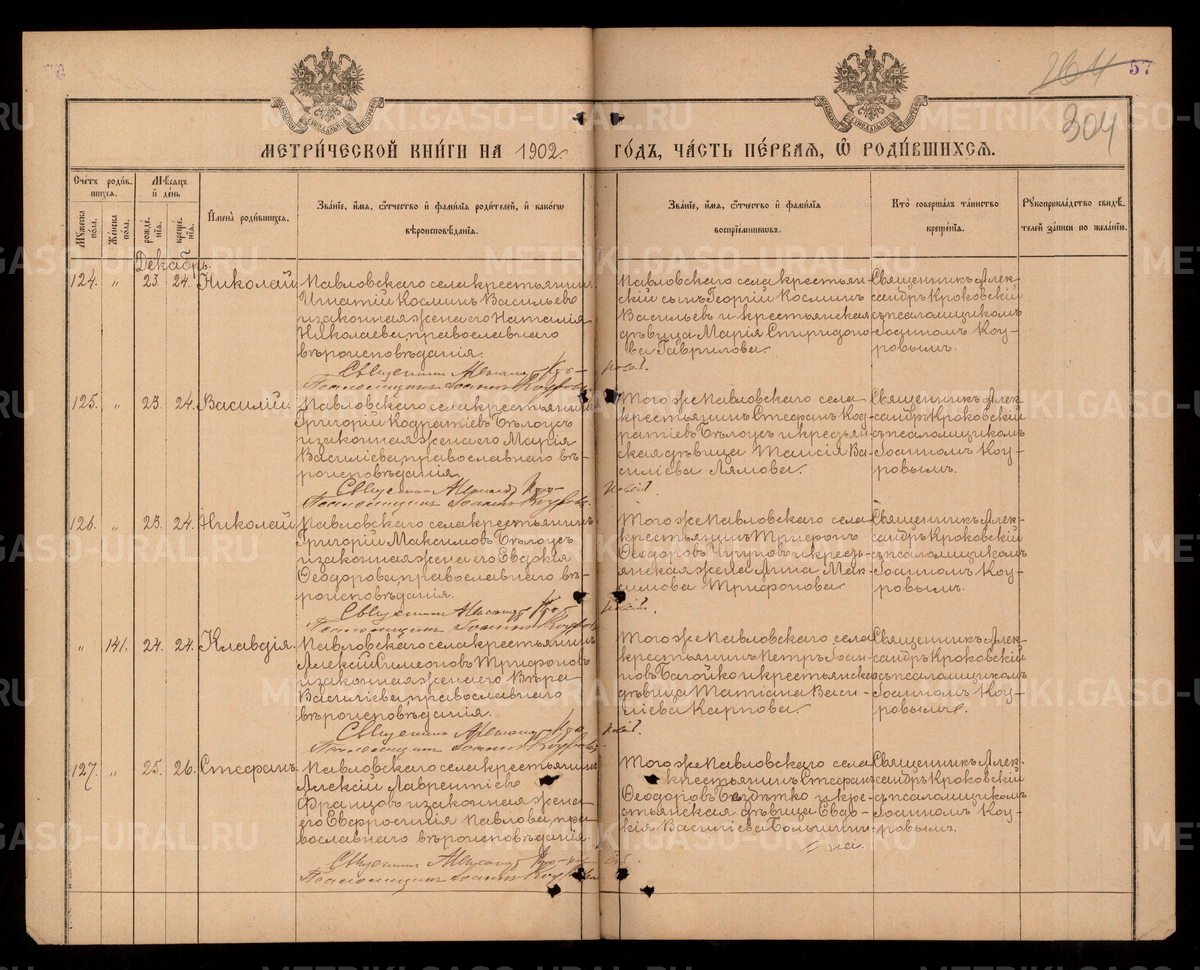 57
264
304
МЕТРИ́ЧЕСКОЙ КНИ́ГИ НА 1902 ГО́ДЪ, ЧА́СТЬ ПЕ́РВАѦ, Ѡ РОДИ́ВШИХСѦ.
Сче́тъ роди́в-
шихся.
Мѣсяцъ
и́ де́нь
Му́жеска
по́ла.
Же́нска
по́ла.
рожде́-
нія.
креще́-
нія.
И҆мена̀ роди́вшихся.
Зва́ніе, и҆́мя, ѻ҆́тчество и҆ фами́лія роди́телей, и҆ како́гѡ
вѣроисповѣ́данія.
Зва́ніе, и҆́мя, ѻ҆́тчество и҆ фами́лія
воспріе́мниковъ.
Кто̀ соверша́лъ та́инство
креще́нія.
Рꙋкоприкла́дство свидѣ́-
телей за́писи по жела́нію.
Декабрь.
124. „ 23. 24. Николай
Павловскаго села крестьянинъ
Игнатій Косминъ Васильевъ
и законная жена его Наталія
Николаева, православнаго
вѣроисповѣданія.
Священникъ Александръ Кро-
ковскій.
Псаломщикъ Іоаннъ Коуровъ.
Павловскаго села крестьян-
скій сынъ Георгій Косминъ
Васильевъ и крестьянская
дѣвица Марія Спиридоно-
ва Гаврилова.
Священникъ Алек-
сандръ Кроковскій
съ псаломщикомъ
Іоанномъ Коу-
ровымъ.
125. „ 23. 24. Василій.
Павловскаго села крестьянинъ
Григорій Кодратіевъ Бѣлоусъ
и законная жена его Марія
Василіева, православнаго вѣ-
роисповѣданія.
Священникъ Александръ Кро-
ковскій.
Псаломщикъ Іоаннъ Коуровъ.
Того же Павловскаго села
крестьянинъ Стефанъ Код-
ратіевъ Бѣлоусъ и крестьян-
ская дѣвица Таисія Ва-
силіева Лямова.
Священникъ Алек-
сандръ Кроковскій
съ псаломщикомъ
Іоанномъ Коу-
ровымъ.
126. „ 23. 24. Николай
Павловскаго села крестьянинъ
Григорій Максимовъ Бѣлоусъ
и законная жена его Евдокія
Ѳеодорова, православнаго вѣ-
роисповѣданія.
Священникъ Александръ Кро-
ковскій.
Псаломщикъ Іоаннъ Коуровъ
Того же Павловскаго села
крестьянинъ Трифонъ
Ѳеодоровъ Чугуновъ и кресть-
янская жена Анна Мак-
симова Трифонова.
Священникъ Алек-
сандръ Кроковскій
съ псаломщикомъ
Іоанномъ Коу-
ровымъ.
„ 141. 24. 24. Клавдія.
Павловскаго села крестьянинъ
Алексій Симеоновъ Трифоновъ
и законная жена его Вѣра
Василіева, православнаго
вѣроисповѣданія.
Священникъ Александръ Кро-
ковскій
Псаломщикъ Іоаннъ Коуровъ
Того же Павловскаго села
крестьянинъ Петръ Іоан-
новъ Багойко и крестьянская
дѣвица Татіана Васи-
ліева Карпова.
Священникъ Алек-
сандръ Кроковскій
съ псаломщикомъ
Іоанномъ Коу-
ровымъ.
127. „ 25. 26. Стефанъ.
Павловскаго села крестьянинъ
Алексій Лаврентіевъ
Францовъ и законная жена
его Евфросинія Павлова, пра-
вославнаго вѣроисповѣданія.
Священникъ Александръ Кро-
ковскій
Псаломщикъ Іоаннъ Коуровъ
Того же Павловскаго села
крестьянинъ Стефанъ
Ѳеодоровъ Бездѣтко и кре-
стьянская дѣвица Евдо-
кія Василіева Болычин-
на.
Священникъ Алек-
сандръ Кроковскій
съ псаломщикомъ
Іоанномъ Коу-
ровымъ.
METRIKI.GASO-URAL.RU